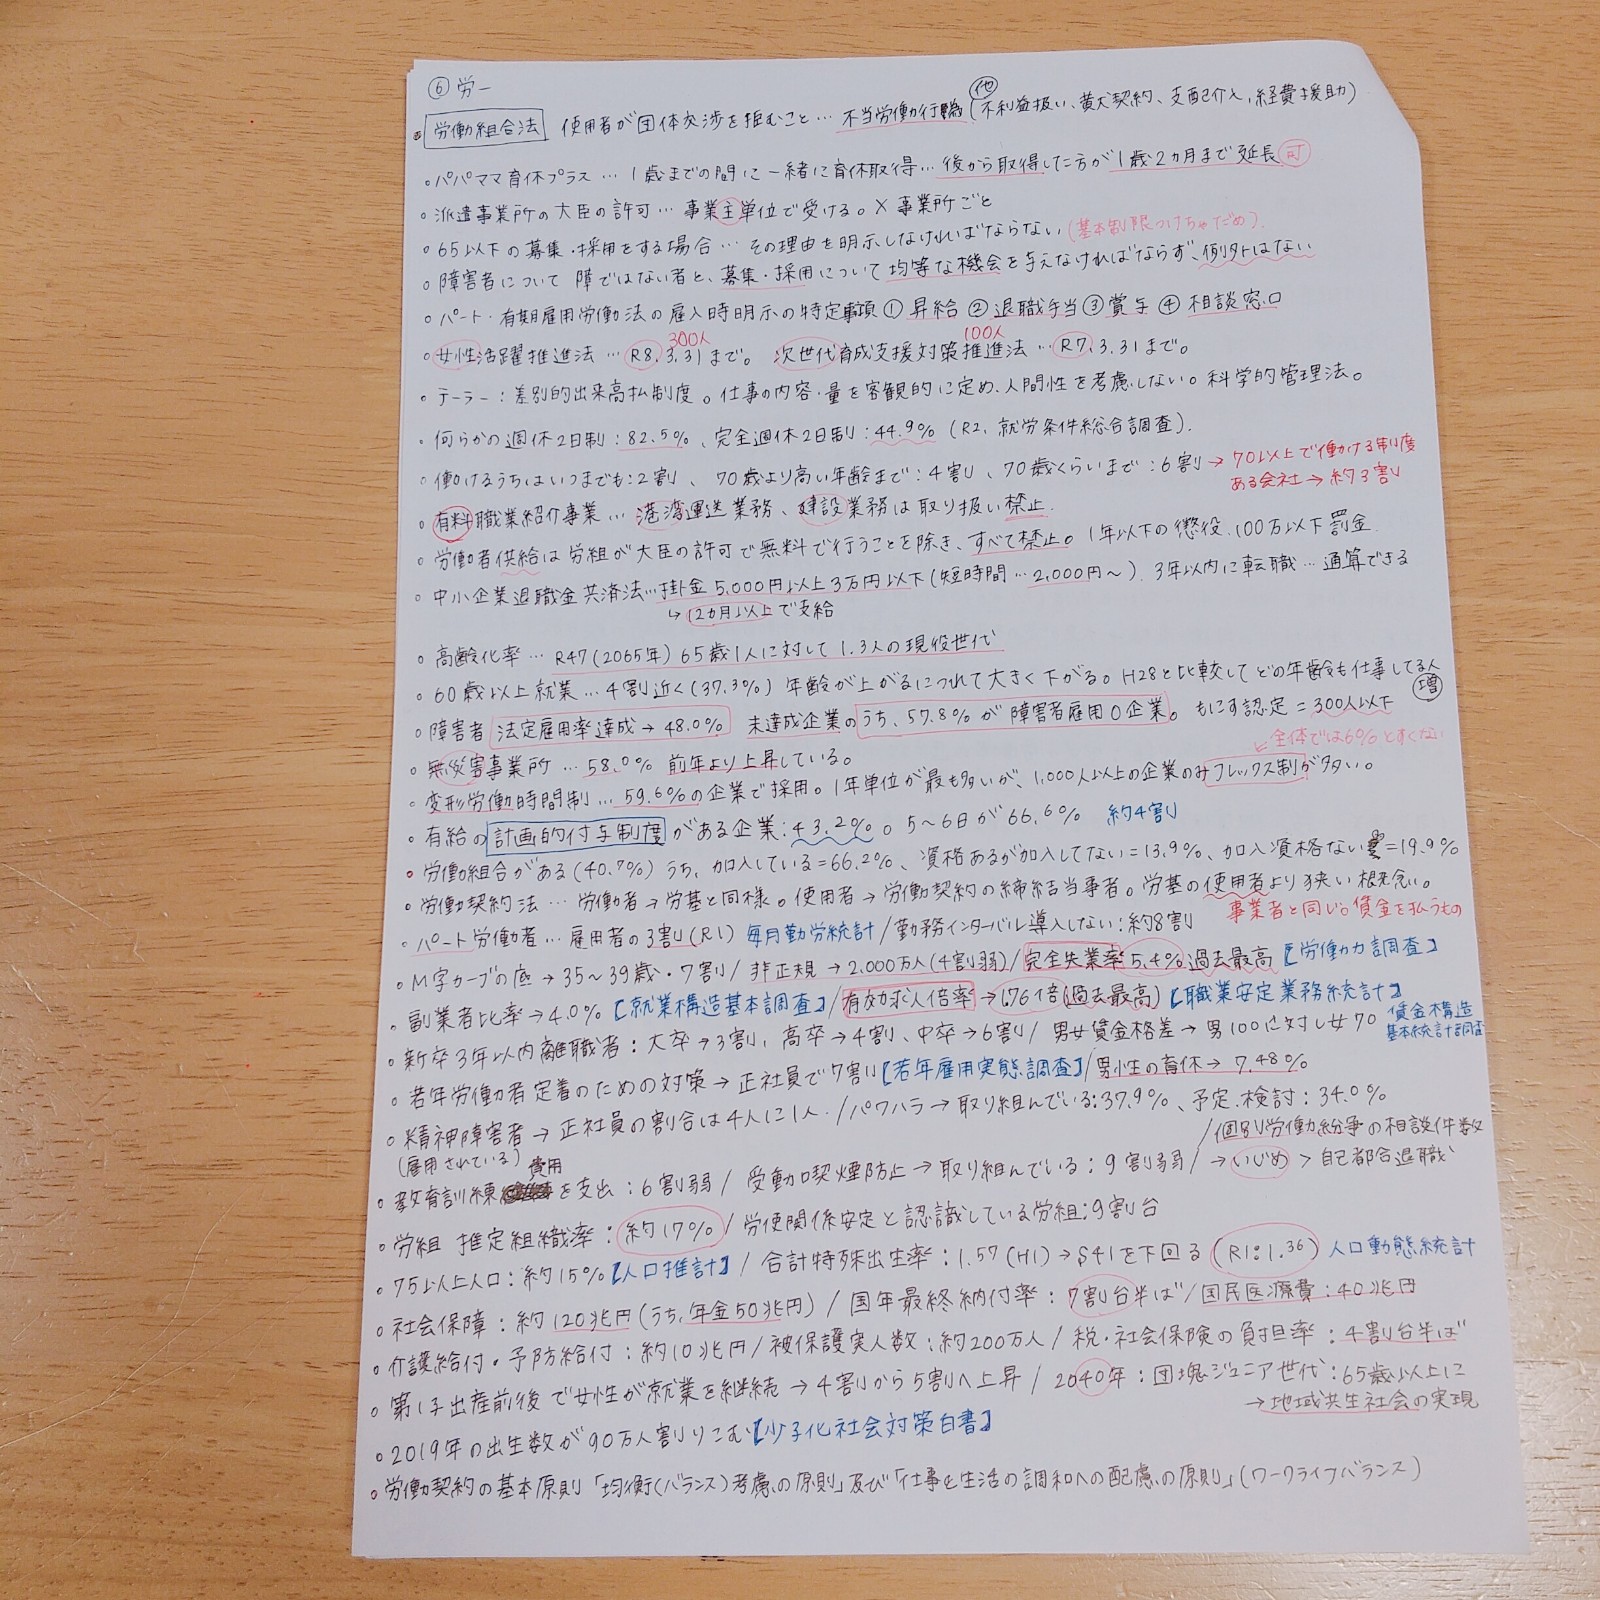 ⑥ 労一
労働組合法 使用者が団体交渉を拒むこと…不当労働行為(他 不利益扱い、黄犬契約、支配介入,経費援助)
。パパママ育休プラス…1歳までの間に一緒に育休取得…後から取得した方が1歳2カ月まで延長可
。派遣事業所の大臣の許可…事業主単位で受ける。×事業所ごと
。65以下の募集・採用をする場合…その理由を明示しなければならない(基本制限つけちゃだめ).
。障害者について 障ではない者と、募集・採用について均等な機会を与えなければならず、例外はない
。パート・有期雇用労働法の雇入時明示の特定事項①昇給②退職手当③賞与④相談窓口
300人 100人
。女性活躍推進法…R8.3.31まで。次世代育成支援対策推進法…R7.3.31まで。
。テーラー:差別的出来高払制度。仕事の内容・量を客観的に定め、人間性を考慮しない。科学的管理法。
。何らかの週休2日制:82.5%、完全週休2日制:44.9%(R2、就労条件総合調査).
。働けるうちはいつまでも:2割、70歳より高い年齢まで:4割、70歳くらいまで:6割→70以上で働ける制度
ある会社→約3割
。有料職業紹介事業…港湾運送業務、建設業務は取り扱い禁止.
。労働者供給は労組が大臣の許可で無料で行うことを除き、すべて禁止。1年以下の懲役、100万以下罰金.
。中小企業退職金共済法…掛金5,000円以上3万円以下(短時間…2,000円〜).3年以内に転職…通算できる
↳12カ月以上で支給
。高齢化率…R47(2065年)65歳1人に対して1.3人の現役世代
。60歳以上就業…4割近く(37.3%)年齢が上がるにつれて大きく下がる。H28と比較してどの年齢も仕事してる人増
。障害者 法定雇用率達成→48.0% 未達成企業のうち、57.8%が障害者雇用0企業。もにす認定=300人以下
。無災害事業所…58.0% 前年より上昇している。 全体では6%とすくない
。変形労働時間制…59.6%の企業で採用。1年単位が最も多いが、1,000人以上の企業のみフレックス制が多い。
。有給の計画的付与制度がある企業:43.2%。5〜6日が66.6% 約4割
。労働組合がある(40.7%)うち、加入している=66.2%、資格あるが加入してない=13.9%、加入資格ない=19.9%
。労働契約法…労働者→労基と同様。使用者→労働契約の締結当事者。労基の使用者より狭い概念。
事業者と同じ。賃金を払うもの
。パート労働者…雇用者の3割(R1)毎月勤労統計/勤務インターバル導入しない:約8割
。M字カーブの底→35〜39歳・7割/非正規→2,000万人(4割弱)/完全失業率5.4%過去最高【労働力調査】
。副業者比率→4.0%【就業構造基本調査】/有効求人倍率→1.76倍(過去最高)【職業安定業務統計】
。新卒3年以内離職者:大卒→3割、高卒→4割、中卒→6割/男女賃金格差→男100に対し女70 賃金構造
基本統計調査
。若年労働者定着のための対策→正社員で7割【若年雇用実態調査】/男性の育休→7.48%
。精神障害者→正社員の割合は4人に1人./パワハラ→取り組んでいる:37.9%、予定.検討:34.0%
(雇用されている) /個別労働紛争の相談件数
。教育訓練費用を支出:6割弱/受動喫煙防止→取り組んでいる:9割弱/→いじめ>自己都合退職
。労組 推定組織率:約17%/労使関係安定と認識している労組:9割台
。75以上人口:約15%【人口推計】/合計特殊出生率:1.57(H1)→S41を下回る(R1:1.36)人口動態統計
。社会保障:約120兆円(うち、年金50兆円)/国年最終納付率:7割台半ば/国民医療費:40兆円
。介護給付・予防給付:約10兆円/被保護実人数:約200万人/税・社会保険の負担率:4割台半ば
。第1子出産前後で女性が就業を継続→4割から5割へ上昇/2040年:団塊ジュニア世代:65歳以上に
→地域共生社会の実現
。2019年の出生数が90万人割りこむ【少子化社会対策白書】
。労働契約の基本原則「均衡(バランス)考慮の原則」及び「仕事と生活の調和への配慮の原則」(ワークライフバランス)